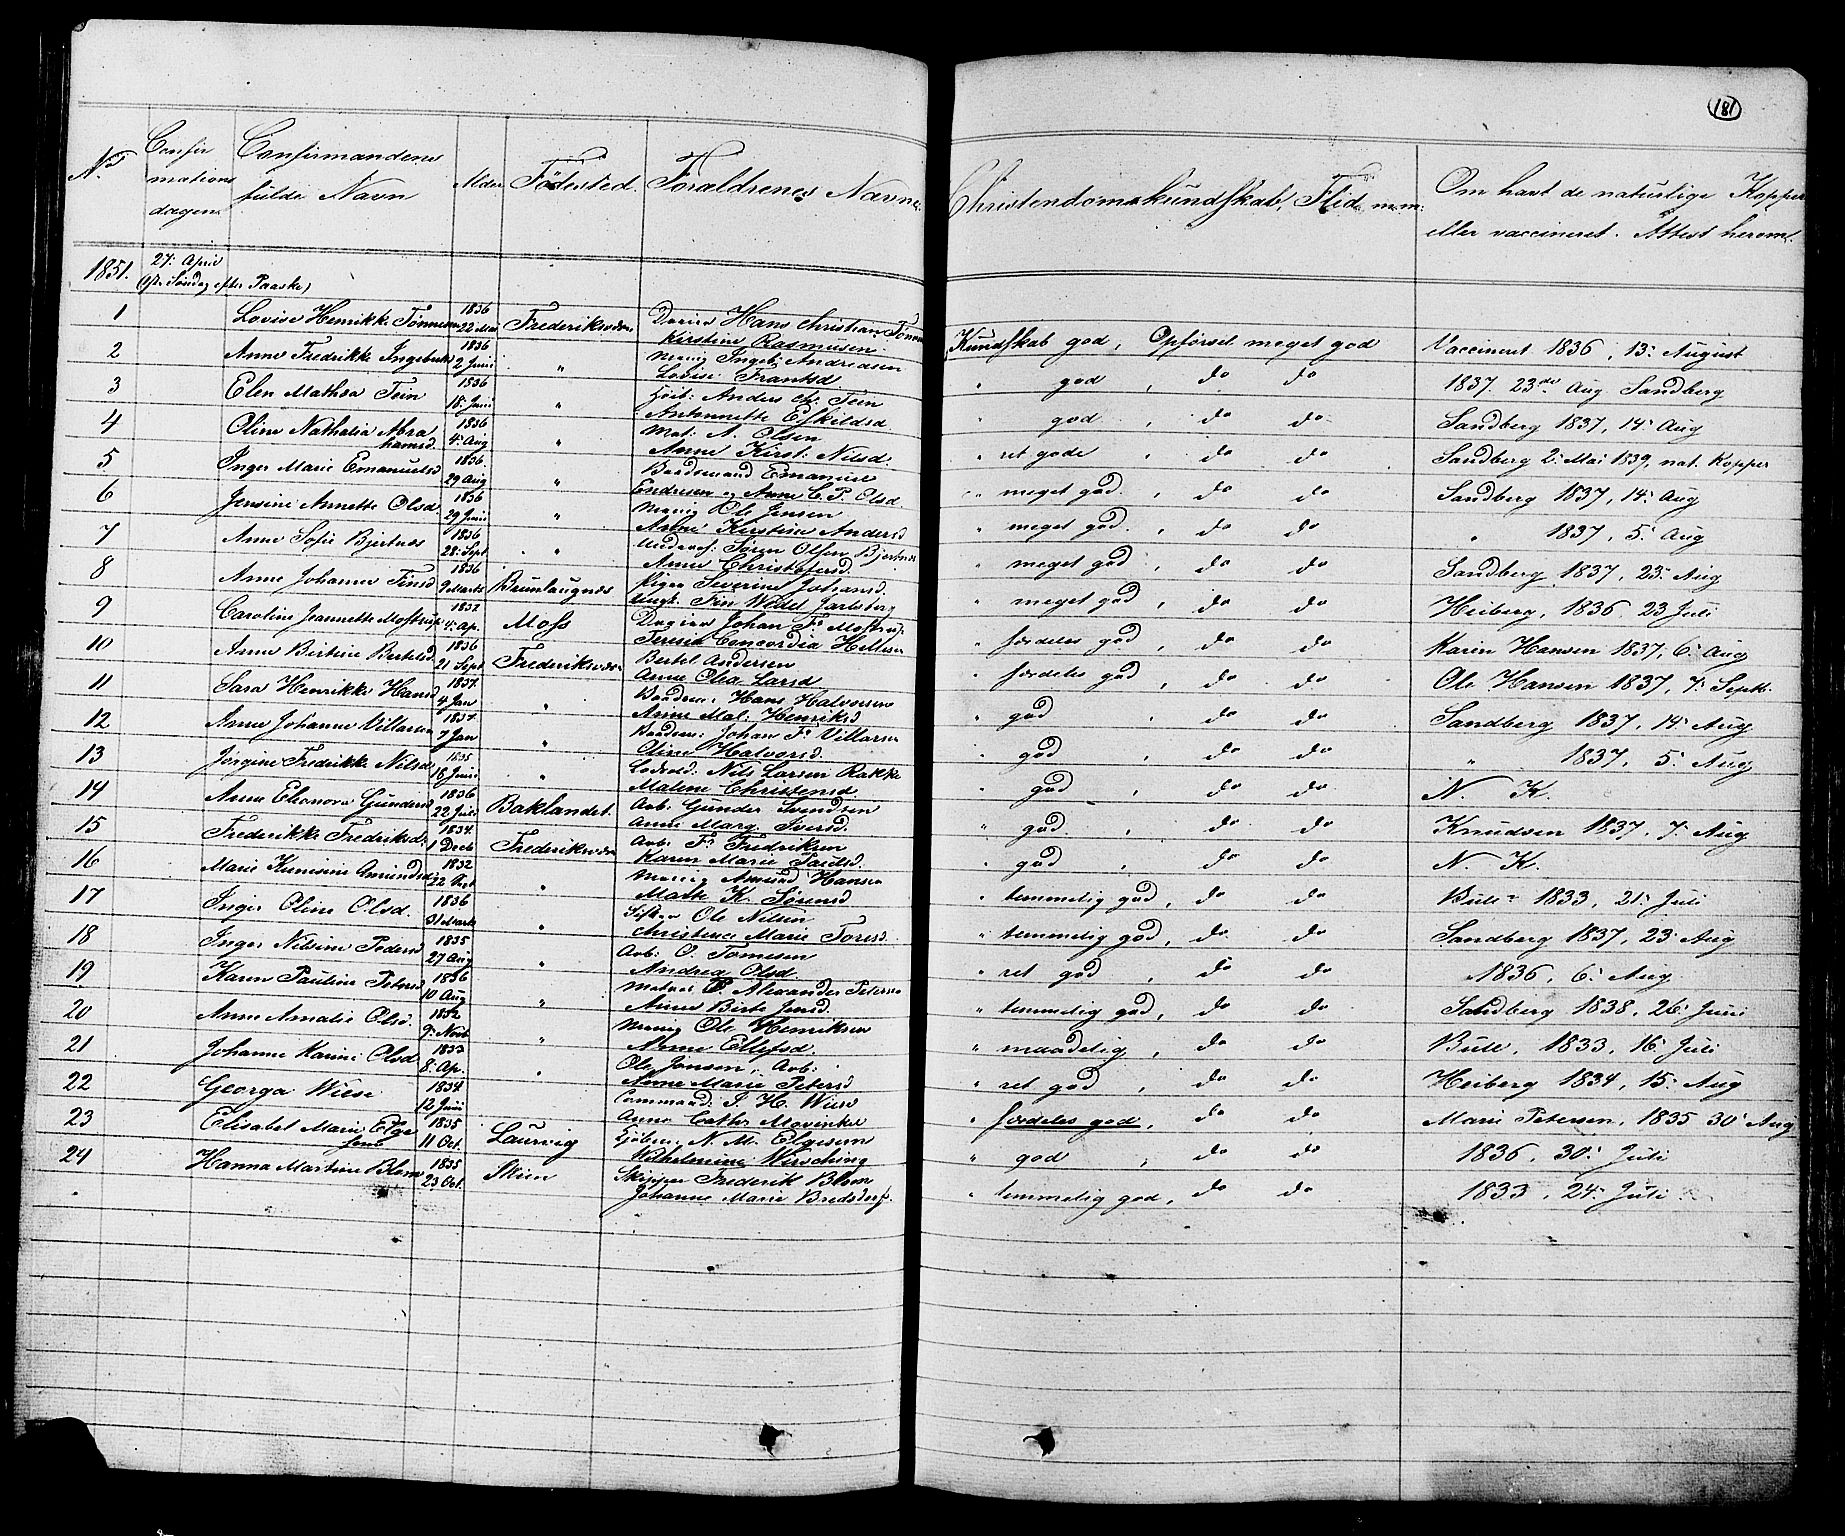 181
No Confirmations dagen Confirmandens fulde Navn Alder Fødested. Forældrenes Navne
Christendomskundskab, Flid m.m: Om havt de naturlige Kopper eller vaccineret. Attest herom.
1851. 27: April (1ste Søndag efter Paaske)
1 Lovise Henrikke Tønnesen 1836 22 Mai Frederiksværn Hans Christian Tønnesen Kirstine Rasmusen Kundskab god, Opførsel meget god Vaccineret 1836, 13: August
2 Anne Fredrikke Ingebretsd 1836 2 Juni " Ingeb: Andreasen Lovise Frantsd. " god, do do 1837. 23de Aug Sandberg
3 Elen Mathea Tein 1836 18: Juni " Anders Chr. Tein Antonnette Eskildsd " god, do do Sandberg 1837, 14: Aug
4 Oline Nathalia Abrahamsd. 1836 4: Aug " Mat: A. Olsen Anne Kirst: Nilsd. " ret gode, do do Sandberg 2: Mai 1839, nat. Kopper
5 Inger Marie Emanuelsd 1836. 29 Aug " Baadsmand Emanuel Endresen og Anne C. P. Olsd. " meget god, do do Sandberg 1837, 14: Aug
6 Jensine Annette Olsd 1836 29 Juni " Ole Jensen Anne Kirstine Andersd " meget god, do do " 1837, 5: Aug
7 Anne Sofie Bjertnæs 1836 28: Sept. " Underof: Søren Olsen Bjertnæs Anne Christofersd. " meget god, do do Sandberg 1837, 23: Aug
8 Anne Johanne Finsd 1836 9 Marts Brunlaugnæs Pigen Severine Johansd. Ungk. Fin Wedel Jarlsberg " meget god, do do Heiberg, 1836. 23 Juli
9 Caroline Jeannette Mostrup 1832 4: Ap. Moss Johan Fr Mostrup Teresia Concordia " fordeles god, do do Karin Hansen 1837, 6: Aug
10 Anne Birtine Bertelsd 1836 21 Sept Frederiksværn Bertel Andersen Anne Olea Larsd " fordeles god, do do Ole Hansen 1837, 7: Septb.
11 Sara Henrikke Hansd 1837. 4 Jan " Baadsm: Hans Halvorsen Anne Mal: Henriksd " god, do do Sandberg 1837, 14: Aug
12 Anne Johanne Villarsen 1837. 7 Jan " Baadsm: Johan Fr Villarsen Oline Halvorsd. " god, do do " 1837, 5: Aug
13 Jørgine Fredrikke Nilsd 1835 18 Juni " Nils Larsen Rakke Malene Christensd " god, do do N. K.
14 Anne Eleonora Gundersd 1836 22 Juli Baklandet. Arb. Gunder Svendsen Anne Marg Iversd. " god, do do Knudsen 1837, 7: Aug
15 Frederikke Fredriksd: 1834. 1 Decb Frederiksværn Arb: Fr Fredriksen Karen Marie Paulsd. " god, do do N. K.
16 Marie Kunisine Amundsd 1832 22 Oct " Amund Hansen Marte K. Sørensd " temmelig god, do do Bull 1833, 21: Juli
17 Inger Oline Olsd. 1836 31 Marts " Ole Nilsen Christence Marie Toresd. " temmelig god, do do Sandberg 1837, 23: Aug
18 Inger Nilsine Pedersd 1835 27 Aug " Arb: Andrea Olsd. " ret god, do do 1836, 6: Aug
19 Karen Pauline Petersd 1836 10 Aug " Matros P. Alexander Petersen Anne Birte Jensd. " temmelig god, do do Sandberg 1838, 26: Juni
20 Anne Amalie Olsd. 1832 9: Novb " Ole Henriksen Anne Ellefsd. " maadelig, do do Bull, 1833, 16: Juli
21 Johanne Karine Olsd 1833 8: Ap. " Ole Jonsen, Arb: Anne Marie Petersd " ret god, do do Heiberg 1834, 15: Aug
22 Georga Wiese 1834 12 Juni Command: J. H. Wiese Anne Cathr Movinkel " fordeles god, do do Marie Petersen, 1835 30: Aug
23 Elisabet Marie Elgesem 1835 11 Oct. Laurvig Kjøbm: N. M. Elgesem Wilhelmine Wirsching " god, do do 1836, 30: Juli
24 Hanna Martine Blom 1835 23 Oct. Skien Skipper Frederik Blom Johanne Marie Bredsdorf. " temmelig god, do do 1833, 24: Juli